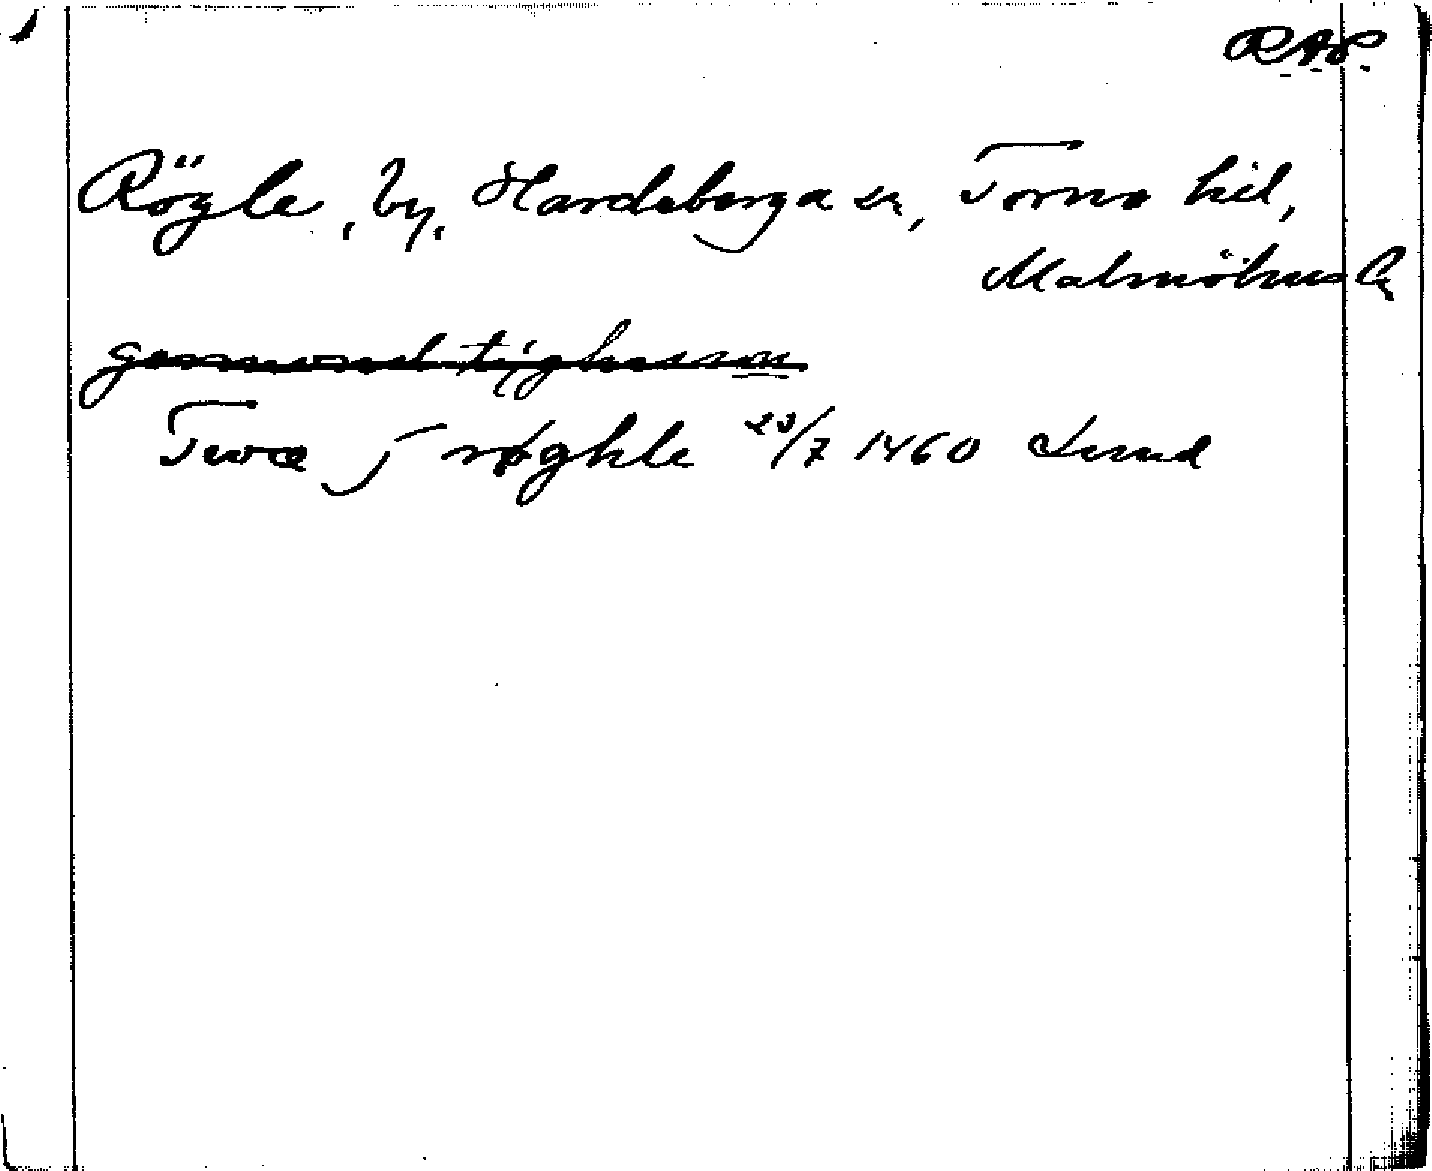 RAP.
Rögle, by, Hardeberga sn, Torna hd,
Malmöhus l.
Twa j røghle 23/7 1460 Lund